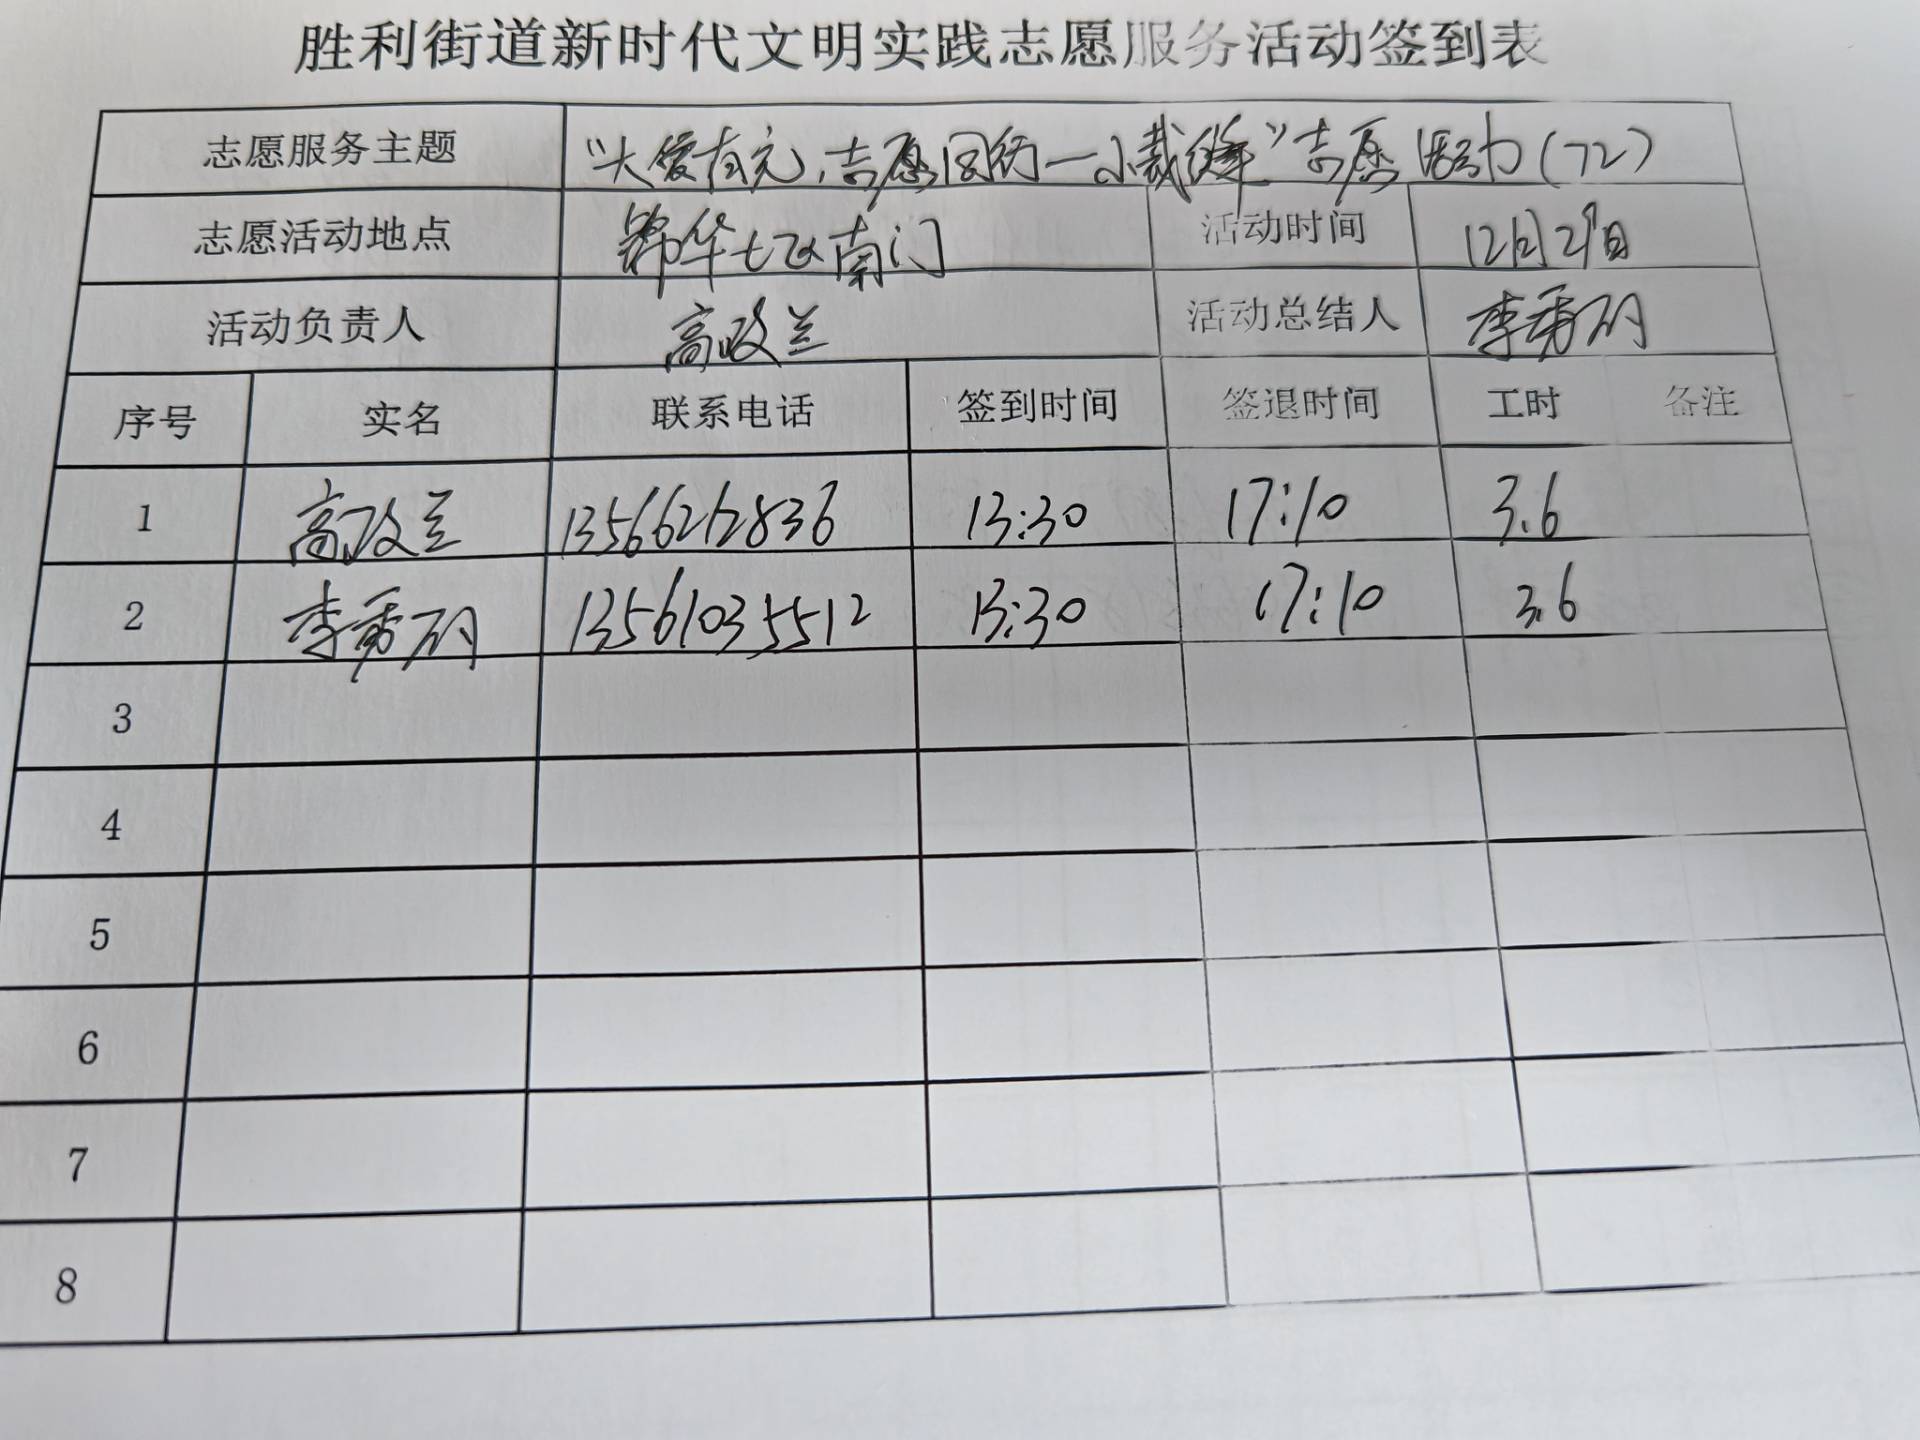 胜利街道新时代文明实践志愿服务活动签到表
志愿服务主题 “大爱有元,志愿同行—小裁缝”志愿活动(72)
志愿活动地点 锦华七区南门 活动时间 12月29日
活动负责人 高政兰 活动总结人 李秀丽
序号 实名 联系电话 签到时间 签退时间 工时 备注
1 高政兰 13566262836 13:30 17:10 3.6
2 李秀丽 13561035512 13:30 17:10 3.6
3
4
5
6
7
8